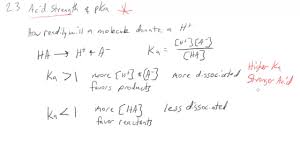 2.3 Acid Strength & pKa *
How readily will a molecule donate a H⁺
HA → H⁺ + A⁻ Ka = [H⁺][A⁻] / [HA]
Ka > 1 more [H⁺] & [A⁻] more dissociated Higher Ka
favors products Stronger Acid
Ka < 1 more [HA] less dissociated
favor reactants